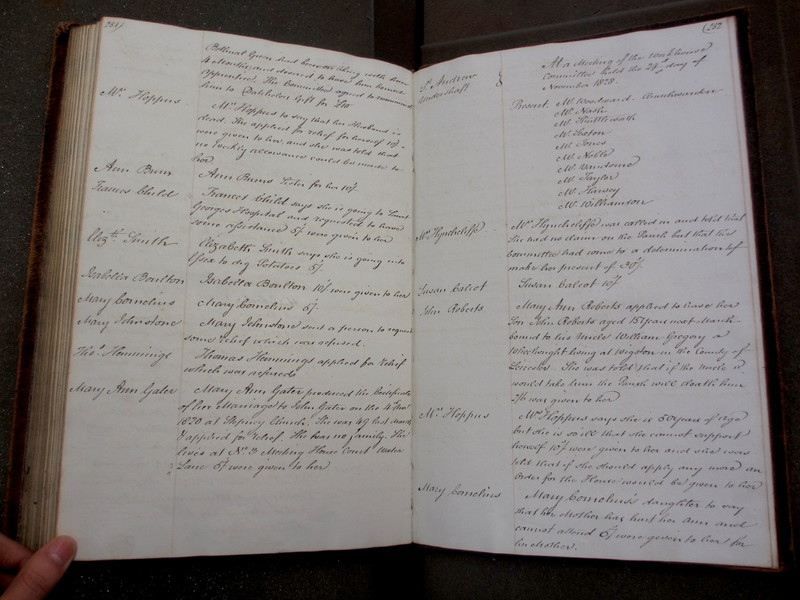 251)
Bethnal Green had been on liking with him
4 Months and desired to have him bound
apprentice. The Committee agreed to recommend
him to Batchelors Gift for £10
Mrs Hoppus
Mrs Hoppus to say that her Husband is
dead. She applied for relief for herself 10/-
were given to her and she was told that
no weekly allowance could be made to
her
Ann Bunn
Ann Bunns Sister for her 10/-
Frances Child
Frances Child says she is going to Saint
Georges Hospital and requested to have
some assistance 5/- were given to her
Elizth Smith
Elizabeth Smith says she is going into
Essex to dig Potatoes 5/-
Isabella Boulton
Isabella Boulton 10/- were given to her
Mary Cornelius
Mary Cornelius 5/-
Mary Johnstone
Mary Johnstone sent a person to request
some relief which was refused.
Thos. Hemmings
Thomas Hemmings applied for relief
which was refused
Mary Ann Gater
Mary Ann Gater produced the Certificate
of her Marriage to John Gater on the 4th
1820 at Stepney Church. She was 49 last March
& applied for relief. She has no family. She
lives at No. 3 Meeting House Court Water
Lane 5/- were given to her
(252
St. Andrew
Undershaft
At a Meeting of the Workhouse
Committee held the 24th day of
November 1828
Present Mr Woodward Churchwarden
Mr Nash
Mr Shuttleworth
Mr Hoton
Mr Jones
Mr Noble
Mr Vandome
Mr Taylor
Mr Harvey
Mr Williamson
Mrs Hynchcliffe
Mrs Hynchcliffe was called in and told that
she had no claim on the Parish but that the
Committee had come to a determination to
make her present of 30/-
Susan Calcot
Susan Calcot 10/-
John Roberts
Mary Ann Roberts applied to have her
Son John Roberts aged 15 Years next March
bound to his Uncle William Gregory a
Wheelwright living at Wigston in the County of
Leicester. She was told that if the Uncle
would take him the Parish will cloath him
2/6 was given to her
Mrs Hoppus
Mrs Hoppus says she is 50 Years of age
but she is so ill that she cannot support
herself 10/- were given to her and she was
told that if she should apply any more an
Order for the House would be given to her
Mary Cornelius
Mary Cornelius's daughter to say
that her Mother has hurt her Arm and
cannot attend 5/- were given to her for
her Mother.